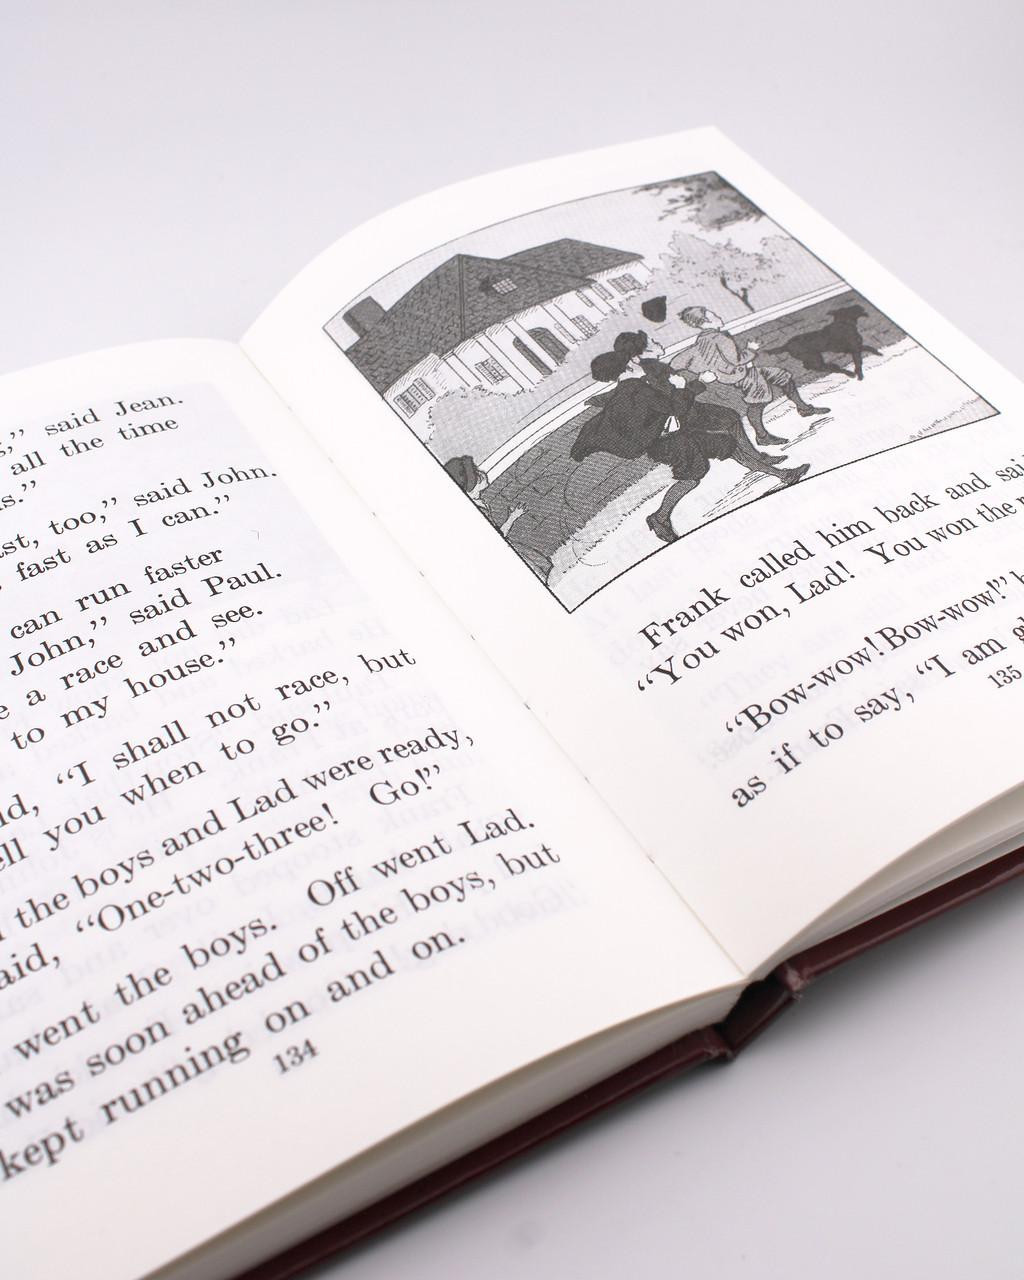 said Jean.
all the time
too,” said John.
fast as I can.”
can run faster
John,” said Paul.
a race and see.
to my house.”
“I shall not race, but
you when to go.”
the boys and Lad were ready,
“One-two-three! Go!”
went the boys. Off went Lad.
was soon ahead of the boys, but
kept running on and on.
134
Frank called him back and said
“You won, Lad! You won the
“Bow-wow! Bow-wow!”
as if to say, “I am
135